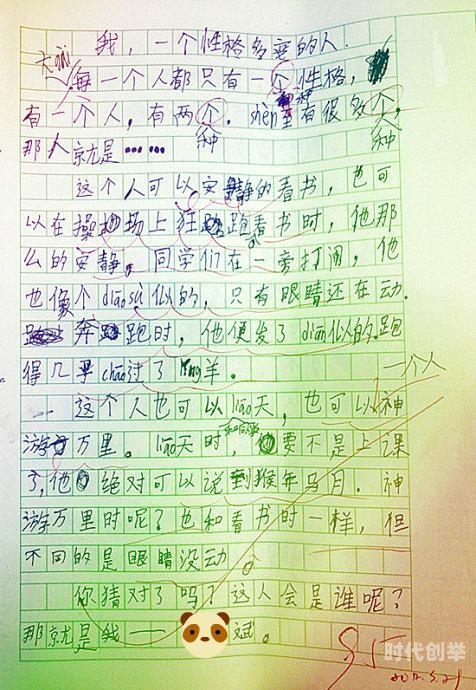 我，一个性格多变的人
大gài
每一个人都只有一个性格，
有一个人，有两个，shèn至有很多个，
种
种
那人就是……
这个人可以安静的看书，也可
以在操场上狂跑看书时，他那
么的安静。同学们在一旁打闹，他
也像个diāosù似的，只有眼睛还在动。
奔跑时，他便发了diān似的跑
得几乎chāo过了líng羊。
一个人
这个人也可以liáo天，也可以神
游万里。liáo天时，要不是上课
和同学
了，他绝对可以说到猴年马月。神
游万里时呢？也和看书时一样，但
不同的是眼睛没动。
你猜对了吗？这人会是谁呢？
那就是我——斌。
时代创举